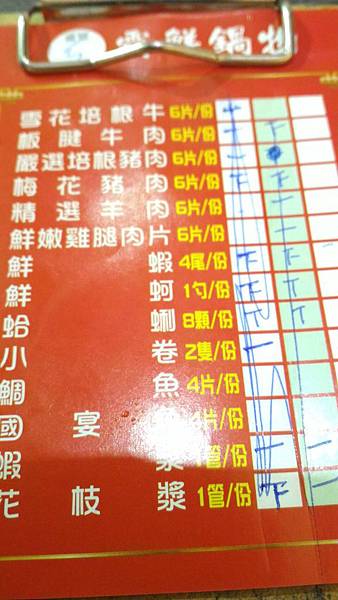 雲鮮鍋物
雪花培根牛 6片/份
板腱牛肉 6片/份 一 下
嚴選培根豬肉 6片/份 一
梅花豬肉 6片/份 下 下
精選羊肉 6片/份 一
鮮嫩雞腿肉片 6片/份 一
鮮蝦 4尾/份 下 下
鮮蚵 1勺/份
蛤蜊 8顆/份
小卷 2隻/份 一
鯛魚 4片/份
國宴 4片/份
蝦漿 1管/份 一 一
花枝漿 1管/份 下